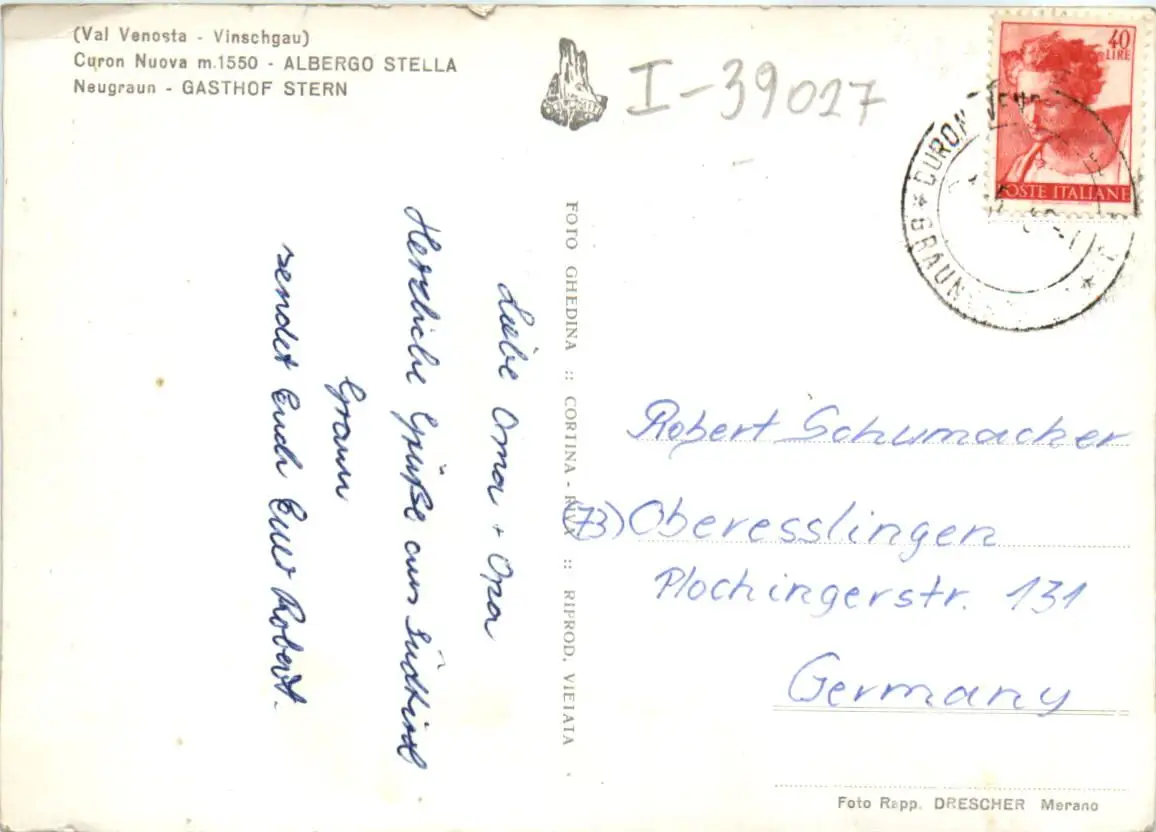 (Val Venosta - Vinschgau)
Curon Nuova m.1550 - ALBERGO STELLA
Neugraun - GASTHOF STERN
I-39027
40
LIRE
POSTE ITALIANE
CURON VENO
GRAUN
Liebe Oma + Opa
Herzliche Grüße aus Südtirol
Graun
sendet Euch Euer Robert.
FOTO GHEDINA :: CORTINA - RIVA :: RIPROD. VIETATA
Robert Schumacher
(73) Oberesslingen
Plochingerstr. 131
Germany
Foto Rapp. DRESCHER Merano